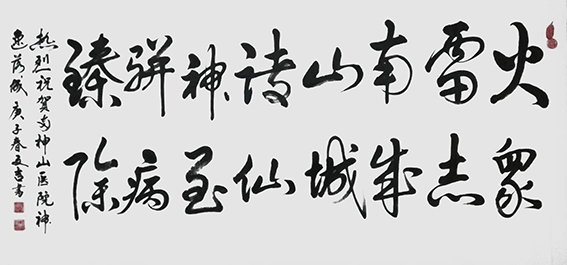 火雷南山诸神骈臻
眾志成城仙至病除
热烈祝贺两神山医院神
速落成 庚子春 书